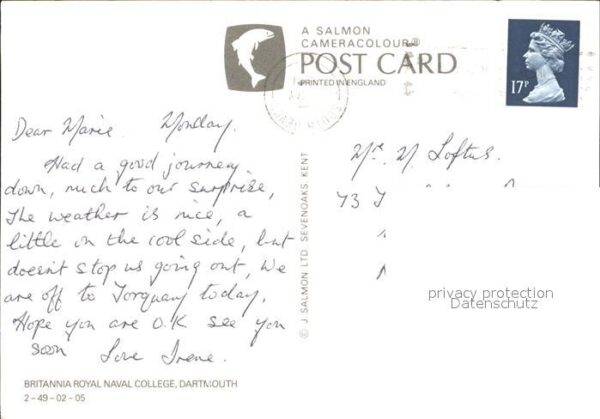 A SALMON
CAMERACOLOUR®
POST CARD
PRINTED IN ENGLAND
17P
Dear Marie Monday.
Had a good journey
down, much to our surprise,
The weather is nice, a
little on the cool side, but
doesn't stop us going out, We
are off to Torquay today,
Hope you are O.K see you
soon Love Irene.
© J SALMON LTD. SEVENOAKS. KENT
M Loftus.
73
privacy protection
Datenschutz
BRITANNIA ROYAL NAVAL COLLEGE, DARTMOUTH
2-49-02-05